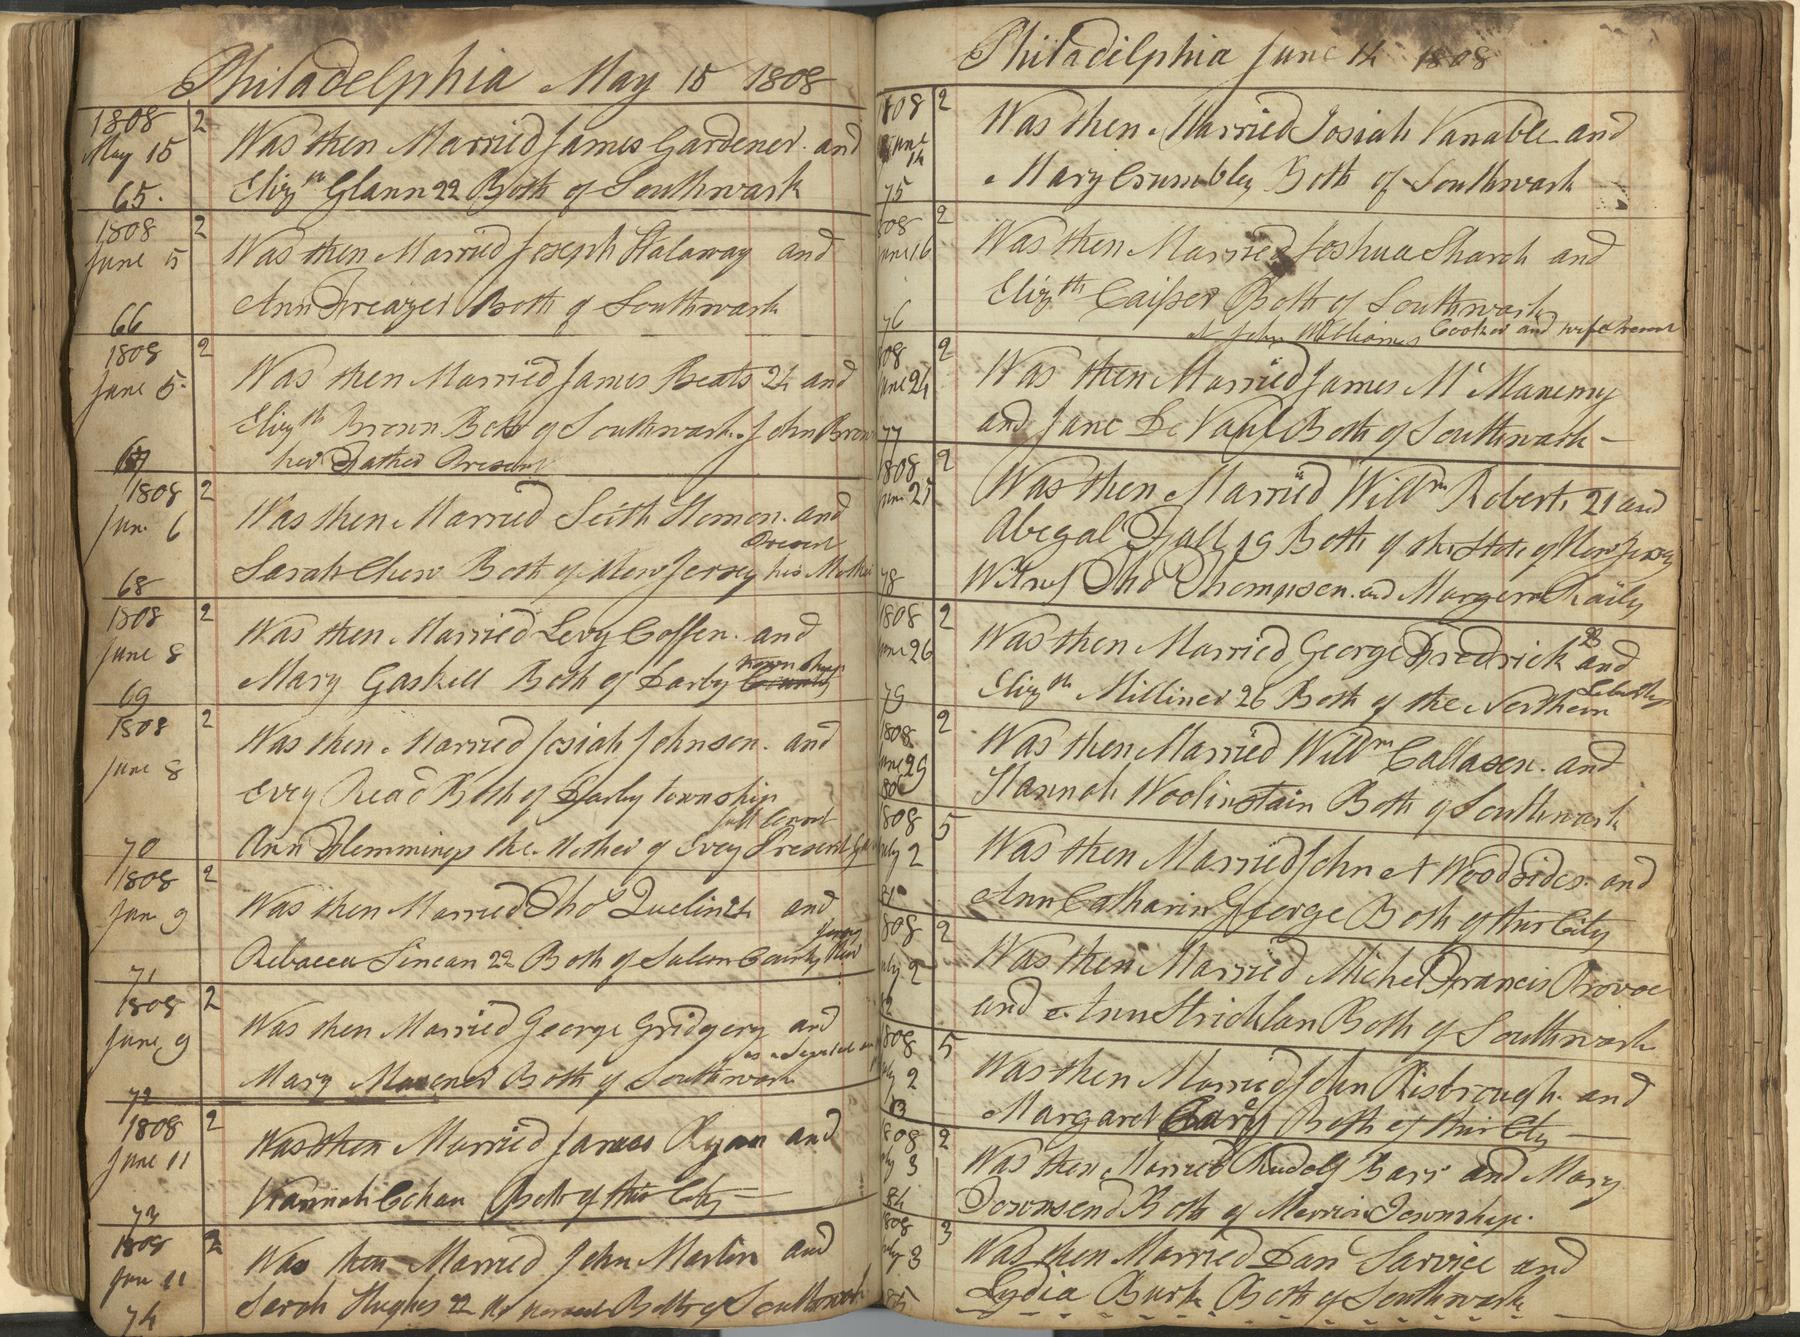 Philadelphia May 15 1808
1808 2
May 15 Was then Married James Gardener and
65. Elizth Glann 22 Both of Southwark
1808 2
June 5 Was then Married Joseph Halaway and
66 Ann Freazer Both of Southwark
1808 2
June 5 Was then Married James Beats 24 and
Elizth Brown Both of Southwark. John Brown
67 her Father Present
1808 2
Jun 6 Was then Married Seith Hemon and
Present
68 Sarah Chew Both of New Jersey his Mother
1808 2
June 8 Was then Married Levy Coffen and
township
69 Mary Gaskill Both of Darby County
1808 2
June 8 Was then Married Josiah Johnson and
Evey Read Both of Darby township
full Consent
70 Ann Flemmings the Mother of Evey Present
1808 2
Jun 9 Was then Married Thos Quelin 24 and
Jersey
71 Rebacca Sinean 22 Both of Salem County New
1808 2
June 9 Was then Married George Gridgery and
72 Mary Both of Southwark
1808 2
June 11 Was then Married James Ryan and
73 Hannah Cohan Both of this City
1808 2
Jun 11 Was then Married John Martin and
74 Sarah Hughes 22 Both of Southwark
Philadelphia June 14 1808
1808 2
June 14 Was then Married Josiah Vanable and
75 Mary Crumbley Both of Southwark
1808 2
June 16 Was then Married Joshua Sharch and
76 Elizth Caisser Both of Southwark
at John Williams Cooker and wife Present
1808 2
June 24 Was then Married James Mc Manemy
77 and Jane De Vaul Both of Southwark
1808 2
Jun 25 Was then Married Willm Roberts 21 and
Abegal Fall 19 Both of the State of New Jersey
78 Witness Thos Thompson and Margera Raily
1808 2
June 26 Was then Married George Fredrick and
Liberty
79 Elizth Milliner 26 Both of the Northern
1808 2
June 29 Was then Married Willm Callasen and
80 Hannah Woolinstain Both of Southwark
1808 5
July 2 Was then Married John A Woodsides and
81 Ann Catharin George Both of this City
1808 2
July 2 Was then Married Michel Francis Provoe
82 and Ann Stricklan Both of Southwark
1808 5
July 2 Was then Married John Risbrough and
83 Margaret Cary Both of this City
1808 2
July 3 Was then Married Rudolf Barr and Mary
84 Townsend Both of Merrion Township
1808 3
July 3 Was then Married Dan Sarvice and
85 Lydia Burk Both of Southwark